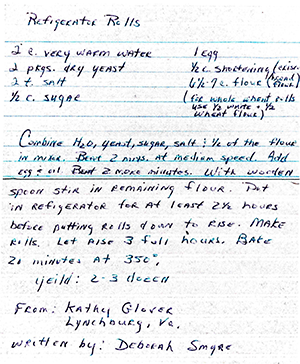 Refrigerator Rolls
2 c. very warm water
2 pkgs. dry yeast
2 t. salt
1/2 c. sugar
1 egg
1/2 c. shortening (crisco)
6 1/2-7 c. flour (bread flour)
(for whole wheat rolls
use 1/2 white & 1/2
wheat flour)
Combine H2O, yeast, sugar, salt & 1/2 of the flour
in mixer. Beat 2 mins. at medium speed. Add
egg & oil Beat 2 more minutes. With wooden
spoon stir in remaining flour. Put
in refigerator for at least 2 1/2 hours
before putting rolls down to rise. Make
rolls. Let rise 3 full hours. Bake
20 minutes at 350°.
yeild: 2-3 dozen
From: Kathy Glover
Lynchburg, Va.
written by: Deborah Smyre